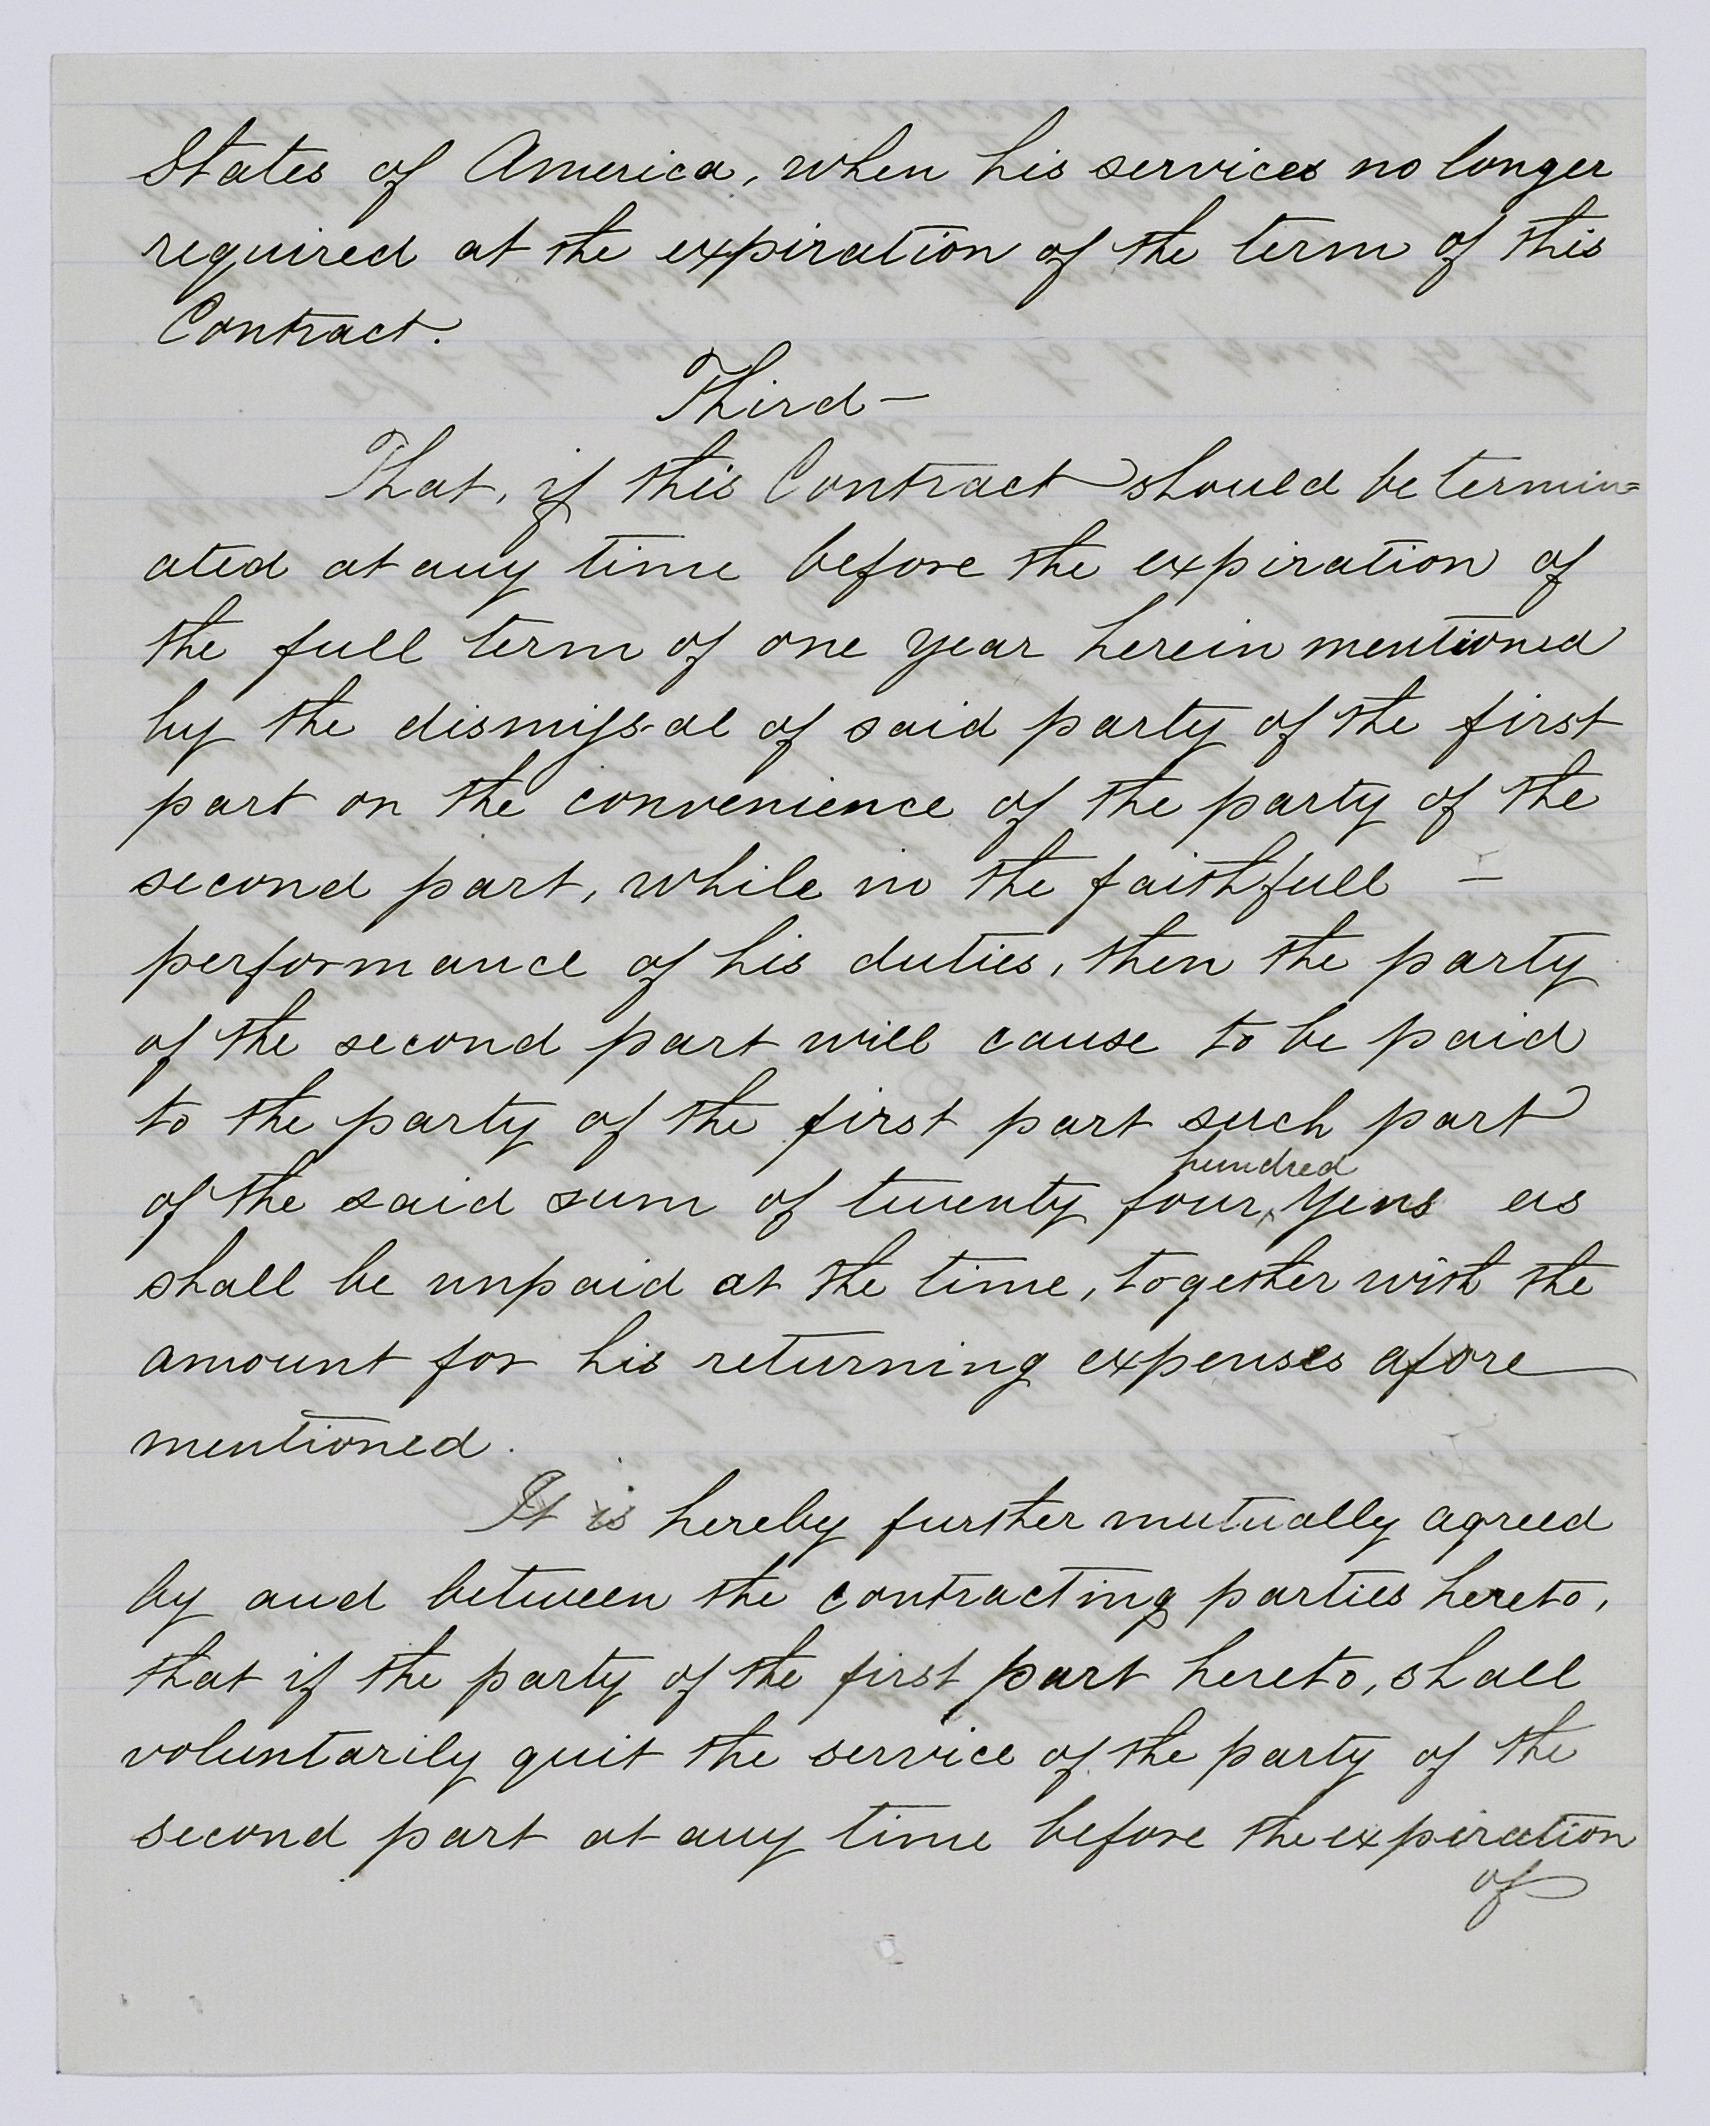 States of America, when his services no longer
required at the expiration of the term of this
Contract.
Third—
That, if this Contract should be termin=
ated at any time before the expiration of
the full term of one year herein mentioned
by the dismissal of said party of the first
part on the convenience of the party of the
second part, while in the faithfull —
performance of his duties, then the party
of the second part will cause to be paid
to the party of the first part such part
hundred
of the said sum of twenty four ‸ Yens as
shall be unpaid at the time, together with the
amount for his returning expenses afore
mentioned.
It is hereby further mutually agreed
by and between the contracting parties hereto,
that if the party of the first part hereto, shall
voluntarily quit the service of the party of the
second part at any time before the expiration
of